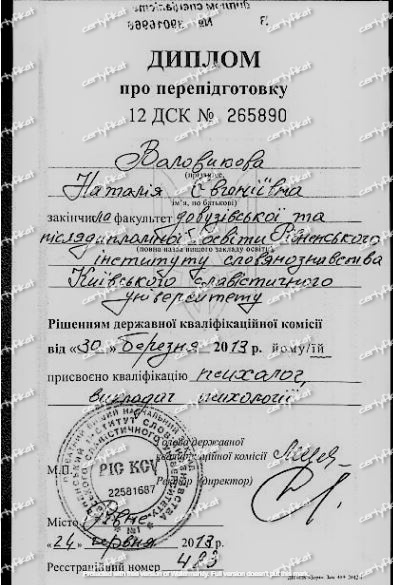 № 39016966
ДИПЛОМ
про перепідготовку
12 ДСК № 265890
Воловикова
(прізвище,
Наталія Євгеніївна
ім'я, по батькові)
закінчила факультет довузівської та
післядипломної освіти Рівненського
(повна назва вищого закладу освіти)
інституту слов'янознавства
Київського славістичного
університету
Рішенням державної кваліфікаційної комісії
від «30» березня 2013 р. йому/їй
присвоєно кваліфікацію психолог,
викладач психології
Голова державної
кваліфікаційної комісії
М.П.
Ректор (директор)
РІС КСУ
22581687
Місто Рівне
«24» червня 2013 р.
Реєстраційний номер 483